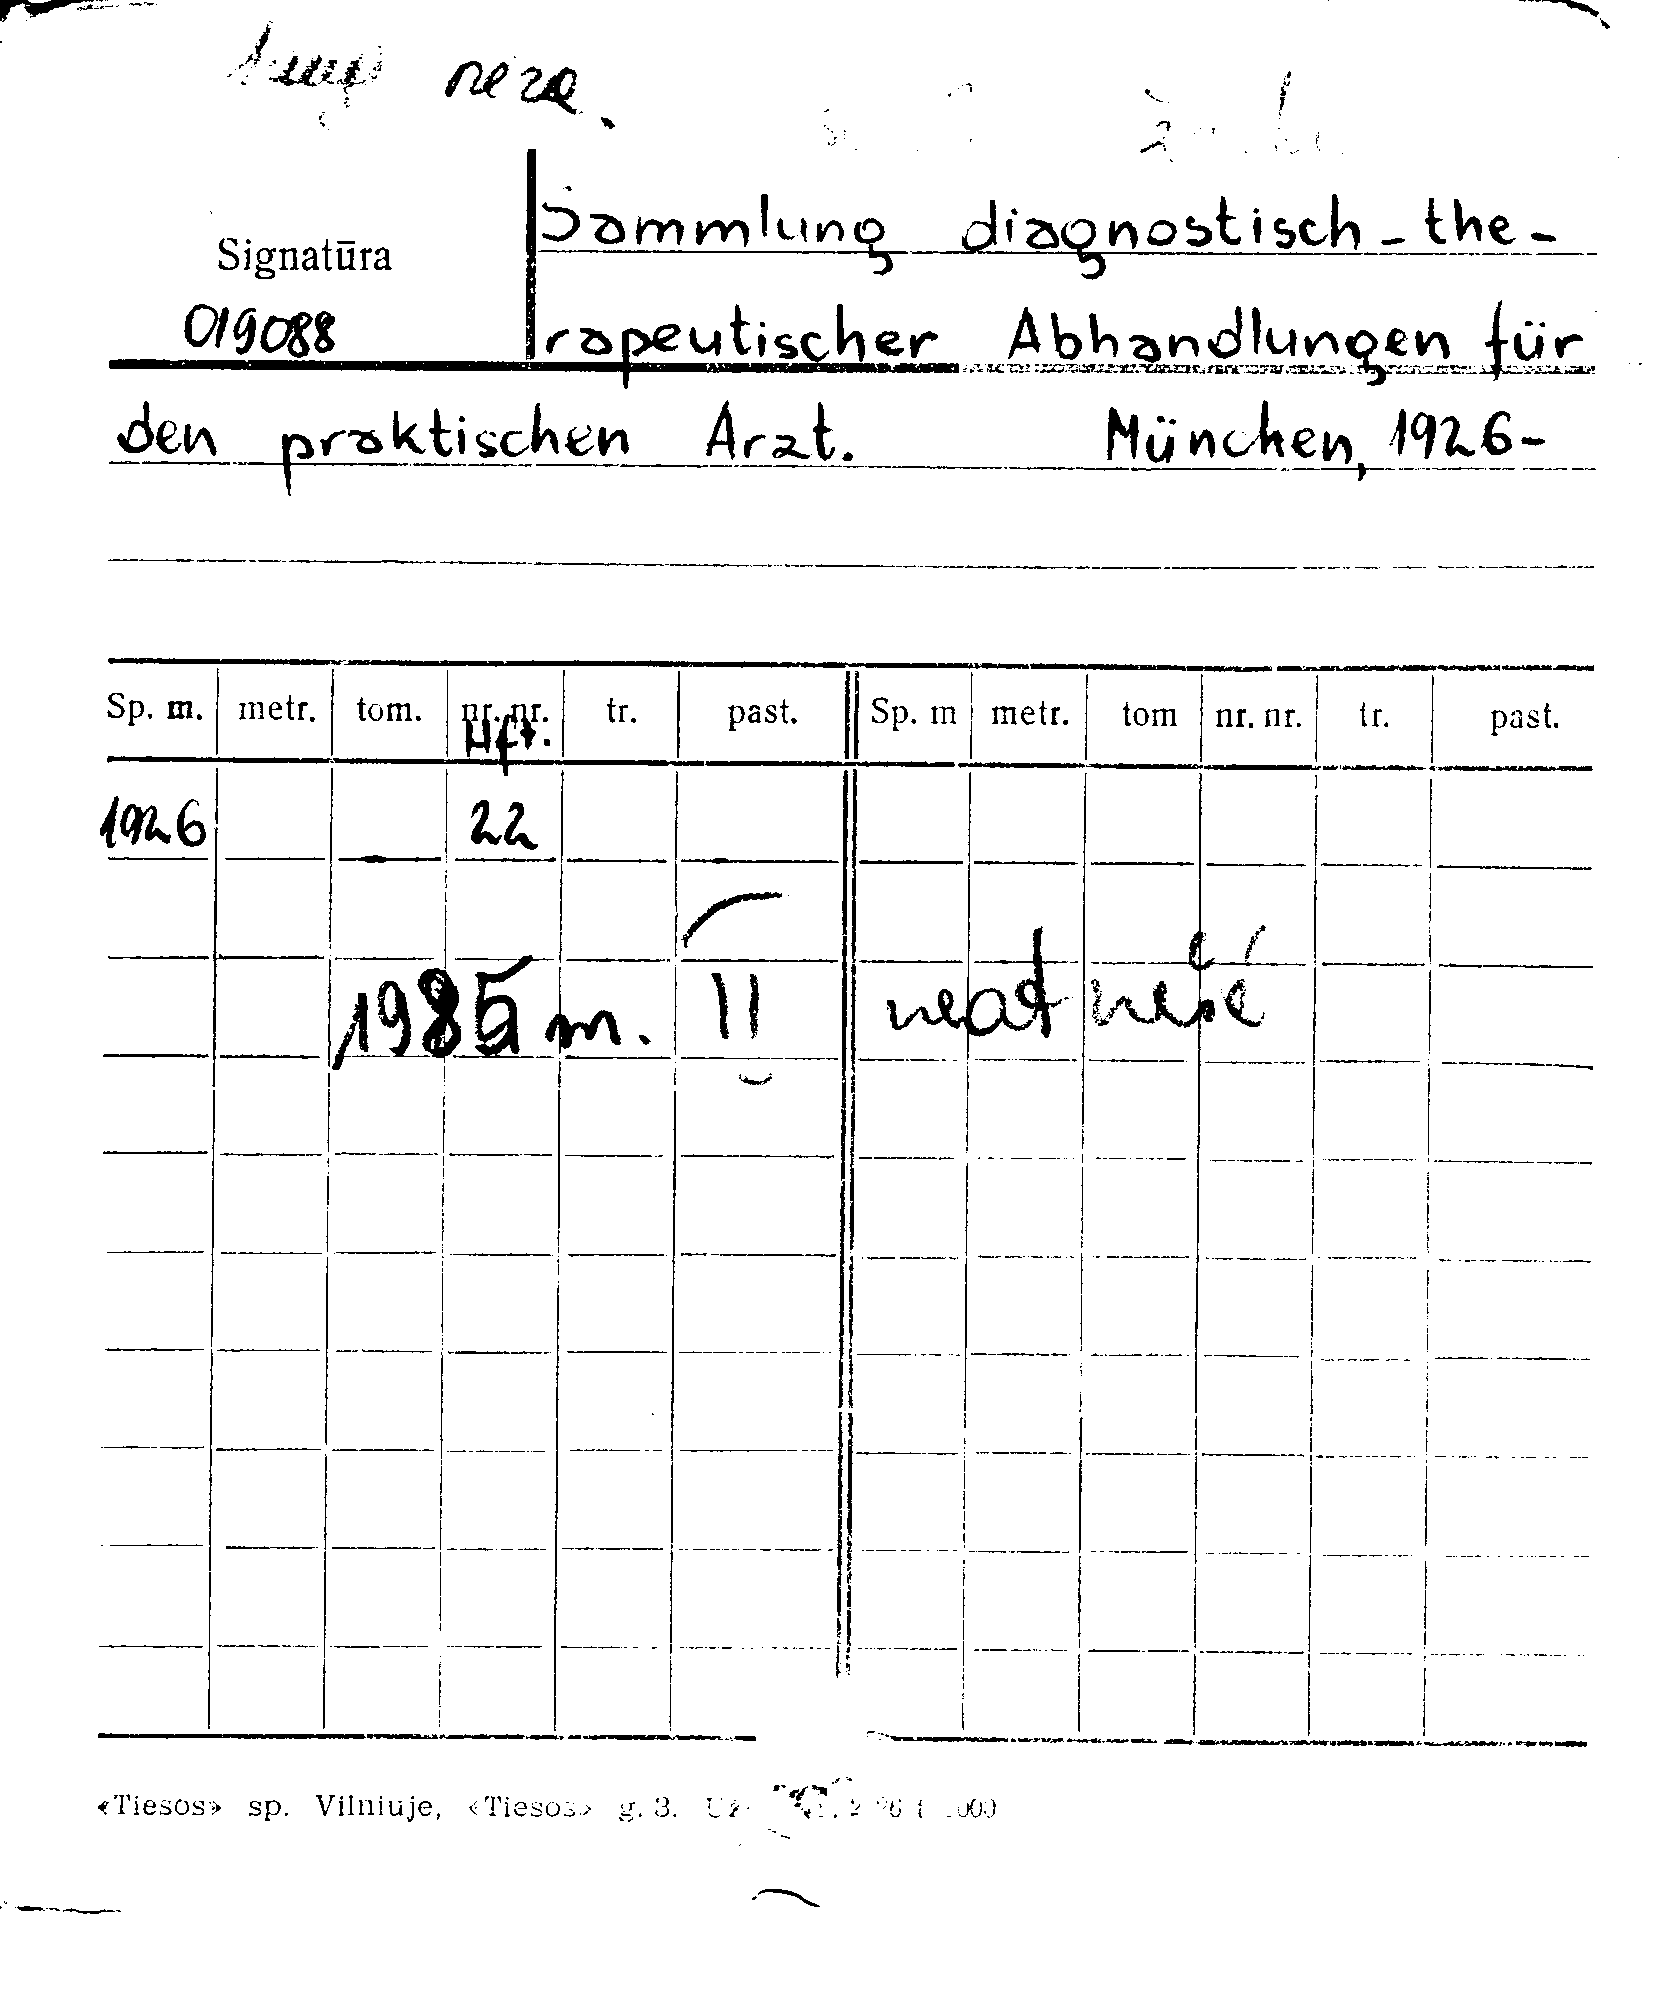 Sammlung diagnostisch-the-
Signatūra
019088
rapeutischer Abhandlungen für
den praktischen Arzt. München, 1926-
Sp. m. metr. tom. nr. nr. tr. past. Sp. m metr. tom nr. nr. tr. past.
Hft.
1926 22
1985 m. neatnešė
«Tiesos» sp. Vilniuje, «Tiesos» g. 3.